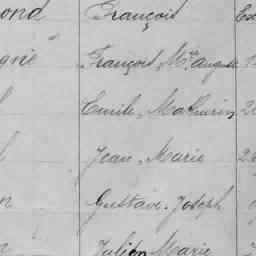 ond François
gnie François, Mie Auguste
Emile, Mathurin
Jean, Marie
Gustave, Joseph
Julien Marie